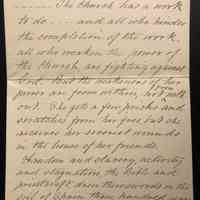 ....... The Church has a work
to do .... and all who hinder
the completion of the work,
all who weaken the power of
the Church, are fighting against
God. But the weakness of her
power are from within, not with
out. She gets a few pricks and
scratches from her foes but she
receives her severest wounds
in the house of her friends.
Freedom and slavery, activity
and stagnation, the Bible and
priestcraft drew the swords in the
soil of Spain three hundred years